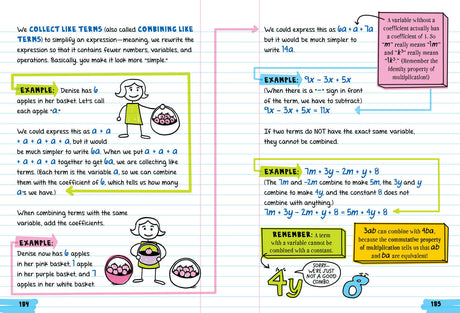 We COLLECT LIKE TERMS (also called COMBINING LIKE
TERMS) to simplify an expression—meaning, we rewrite the
expression so that it contains fewer numbers, variables, and
operations. Basically, you make it look more "simple."
EXAMPLE: Denise has 6
apples in her basket. Let's call
each apple "a."
We could express this as a + a
+ a + a + a + a, but it would
be much simpler to write 6a. When we put a + a + a
+ a + a + a together to get 6a, we are collecting like
terms. (Each term is the variable a, so we can combine
them with the coefficient of 6, which tells us how many
a's we have.)
When combining terms with the same
variable, add the coefficients.
EXAMPLE:
Denise now has 6 apples
in her pink basket, 1 apple
in her purple basket, and 7
apples in her white basket.
184
We could express this as 6a + a + 7a
but it would be much simpler to
write 14a.
A variable without a
coefficient actually has
a coefficient of 1. So
"m" really means "1m"
and "k³" really means
"1k³." (Remember the
identity property of
multiplication!)
EXAMPLE: 9x − 3x + 5x
(When there is a "−" sign in front
of the term, we have to subtract.)
9x − 3x + 5x = 11x
If two terms do NOT have the exact same variable,
they cannot be combined.
EXAMPLE: 7m + 3y − 2m + y + 8
(The 7m and −2m combine to make 5m, the 3y and y
combine to make 4y, and the constant 8 does not
combine with anything.)
7m + 3y − 2m + y + 8 = 5m + 4y + 8
REMEMBER: A term
with a variable cannot be
combined with a constant.
3ab can combine with 4ba,
because the commutative property
of multiplication tells us that ab
and ba are equivalent!
SORRY—
WE'RE JUST
NOT A GOOD
COMBO.
4y
8
185